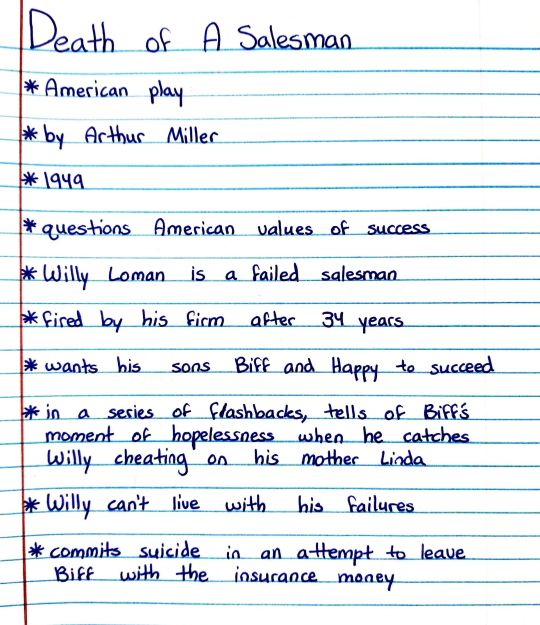 Death of A Salesman
* American play
* by Arthur Miller
* 1949
* questions American values of success
* Willy Loman is a failed salesman
* fired by his firm after 34 years
* wants his sons Biff and Happy to succeed
* in a series of flashbacks, tells of Biff's
moment of hopelessness when he catches
Willy cheating on his mother Linda
* Willy can't live with his failures
* commits suicide in an attempt to leave
Biff with the insurance money